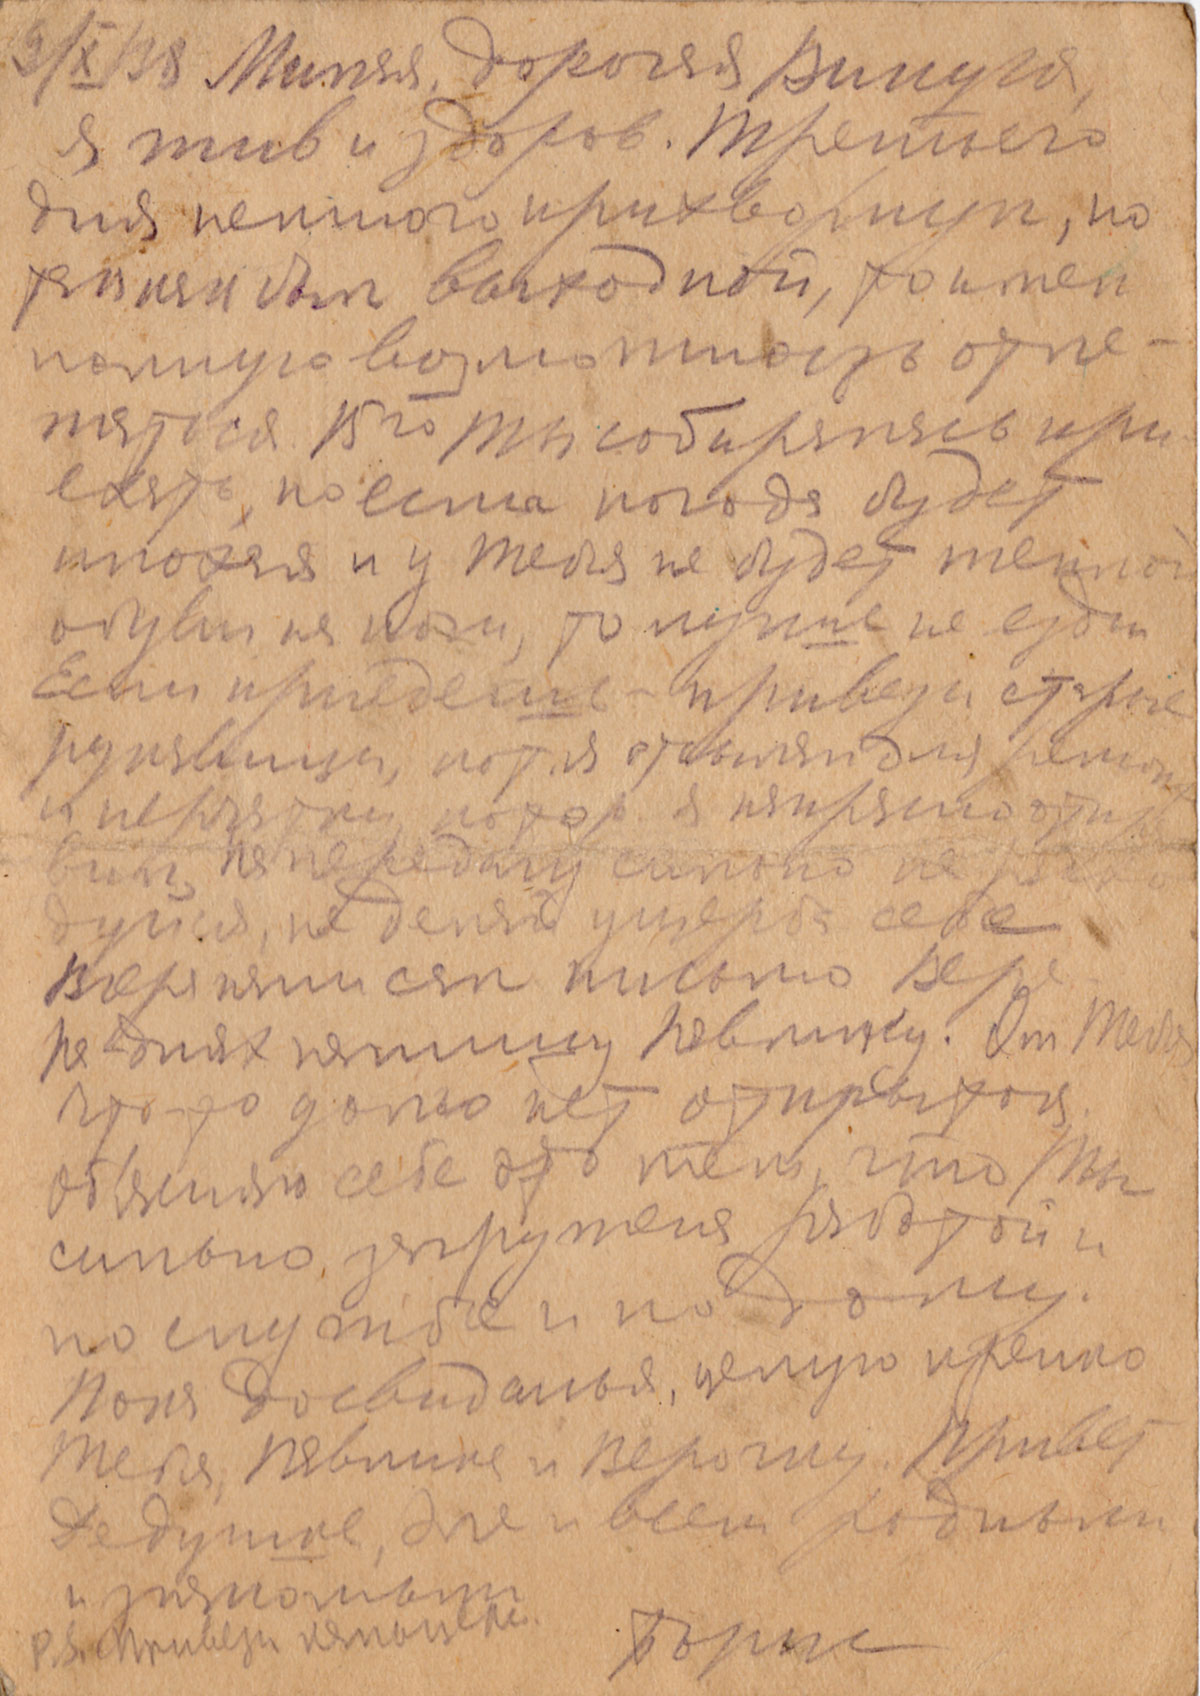 9/X/38 Милая, дорогая Викуся,
я жив и здоров. Третьего
дня немного прихворнул, но
так как был выходной, то имел
полную возможность отле-
жаться. 15го Ты собиралась при
ехать, но если погода будет
плохая и у Тебя не будет теплой
обуви на ноги, то лучше не езди
Если приедешь – привези старые
рукавицы, кот. я отсылал для ремонта
и перчатки, котор. я напрасно отпра
вил. На передачу сильно не расхо
дуйся, не делай ущерба себе
Вчера написал письмо Вере
на днях напишу Павлику. От Тебя
что-то долго нет открыток.
Объясняю себе это тем, что Ты
сильно загружена работой и
по службе и по дому.
Пока до свиданья, целую крепко
Тебя, Павлика и Верочку. Привет
Дедушке, и всем родным
и знакомым
P.S. Привези
Борис